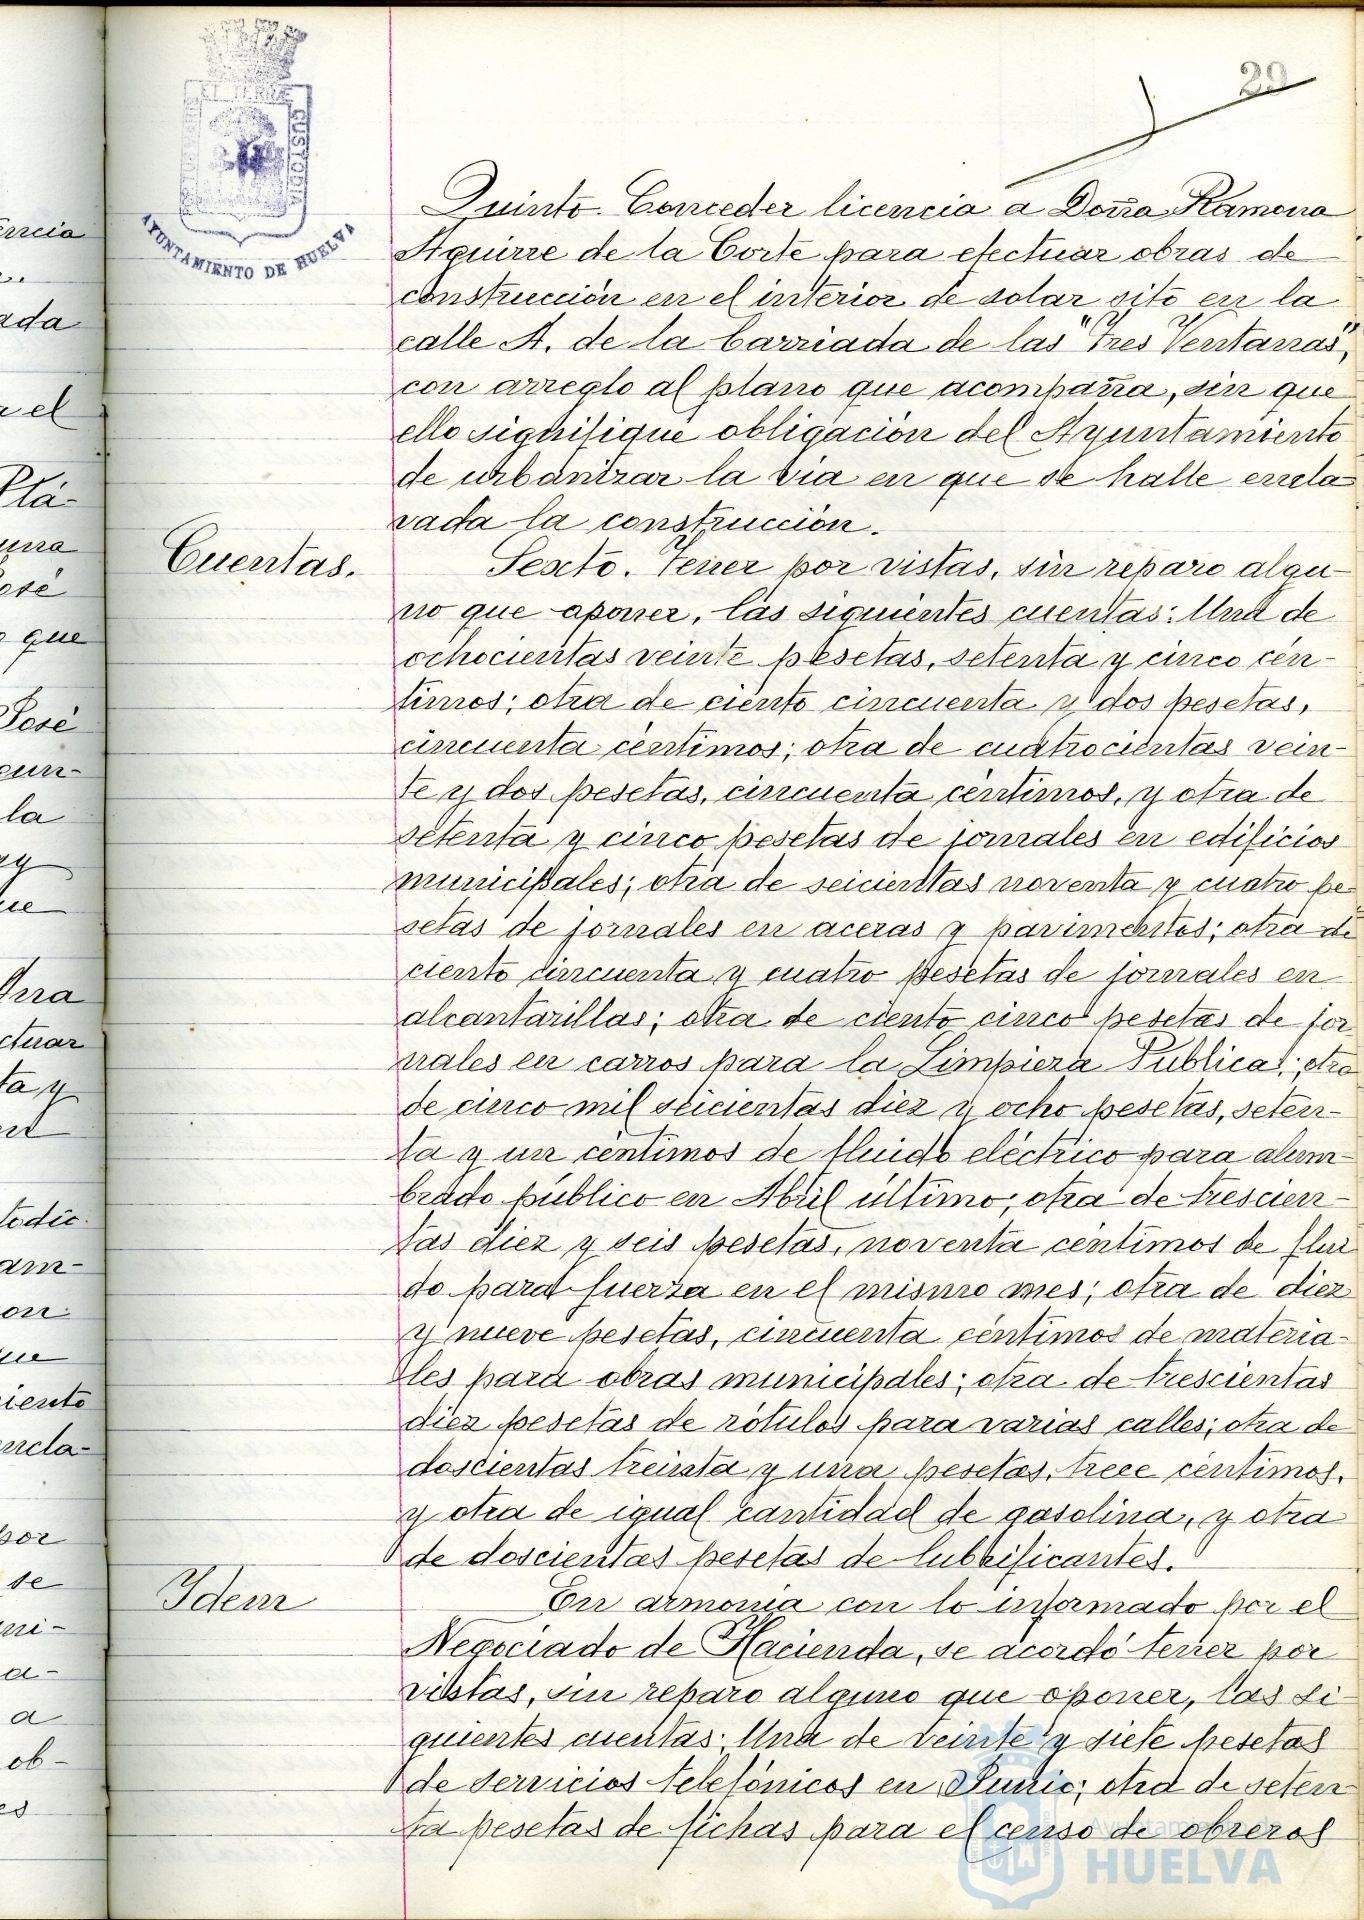 29
ET TERRÆ
CUSTODIA
AYUNTAMIENTO DE HUELVA
Quinto. Conceder licencia a Doña Ramona
Aguirre de la Corte para efectuar obras de
construcción en el interior de solar sito en la
calle A. de la barriada de las "Tres Ventanas",
con arreglo al plano que acompaña, sin que
ello signifique obligación del Ayuntamiento
de urbanizar la via en que se halle encla-
vada la construcción.
Cuentas.
Sexto. Tener por vistas, sin reparo algu-
no que oponer, las siguientes cuentas: Una de
ochocientas veinte pesetas, setenta y cinco cén-
timos; otra de ciento cincuenta y dos pesetas,
cincuenta céntimos; otra de cuatrocientas vein-
te y dos pesetas, cincuenta céntimos, y otra de
setenta y cinco pesetas de jornales en edificios
municipales; otra de seicientas noventa y cuatro pe-
setas de jornales en aceras y pavimentos; otra de
ciento cincuenta y cuatro pesetas de jornales en
alcantarillas; otra de ciento cinco pesetas de jor-
nales en carros para la Limpieza Publica; otra
de cinco mil seicientas diez y ocho pesetas, seten-
ta y un céntimos de fluido eléctrico para alum-
brado público en Abril último; otra de trescien-
tas diez y seis pesetas, noventa céntimos de flui
do para fuerza en el mismo mes; otra de diez
y nueve pesetas, cincuenta céntimos de materia-
les para obras municipales; otra de trescientas
diez pesetas de rótulos para varias calles; otra de
doscientas treinta y una pesetas, trece céntimos,
y otra de igual cantidad de gasolina, y otra
de doscientas pesetas de lubrificantes.
Idem
En armonía con lo informado por el
Negociado de Hacienda, se acordó tener por
vistas, sin reparo alguno que oponer, las si
guientes cuentas: Una de veinte y siete pesetas
de servicios telefónicos en Junio; otra de seten
ta pesetas de fichas para el censo de obreros
Ayuntamiento de
HUELVA